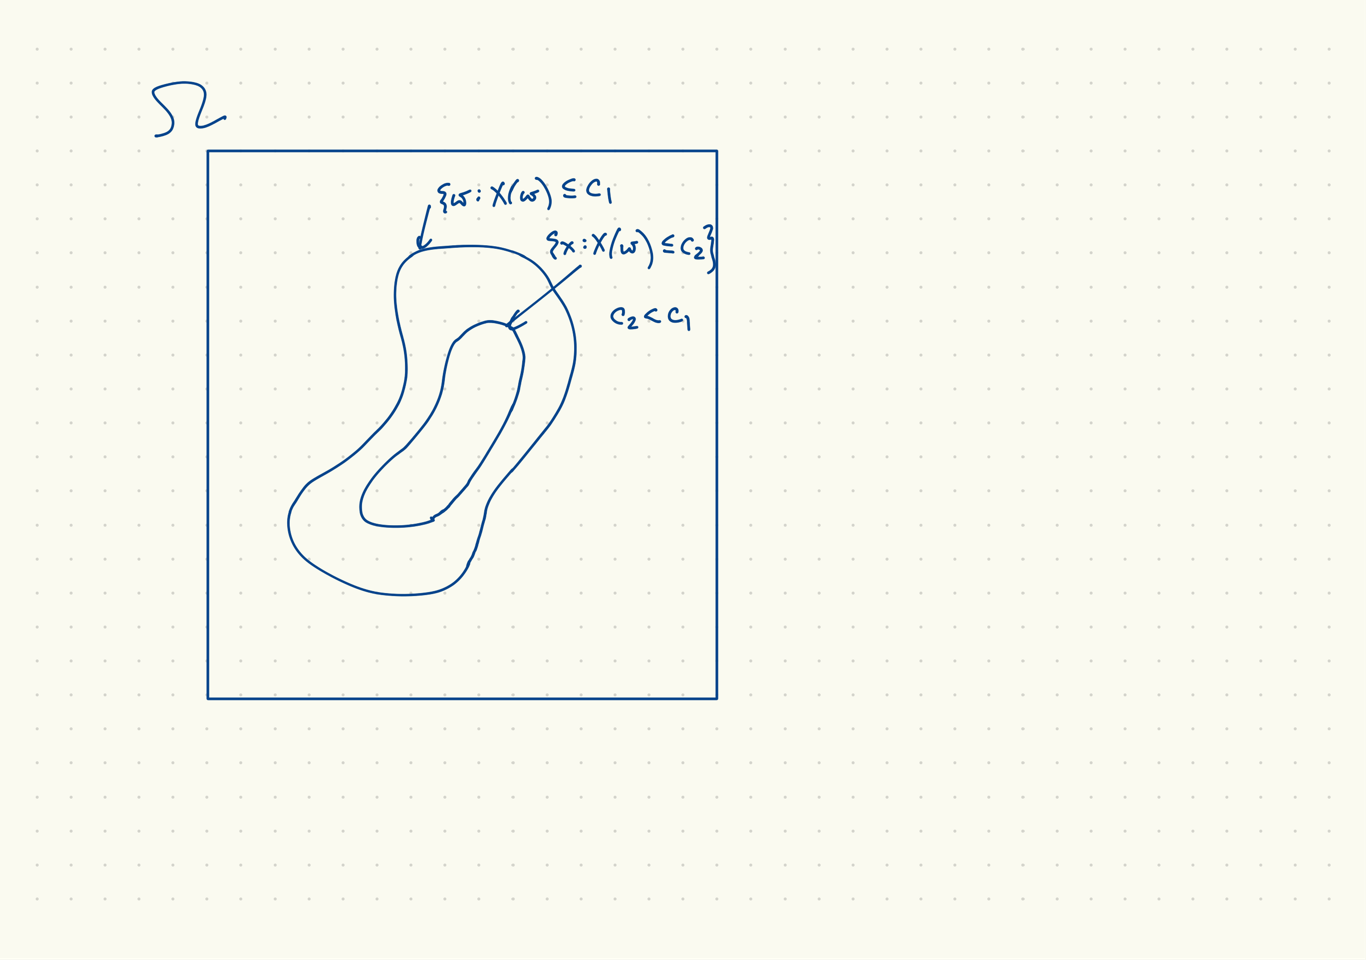 Ω
{ω: X(ω) ≤ C₁
{x: X(ω) ≤ C₂}
C₂ < C₁